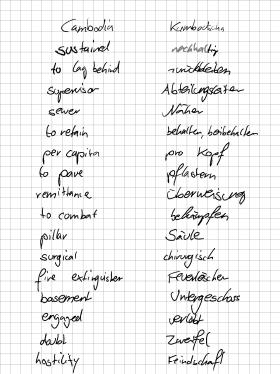 Cambodia Kambodscha
sustained nachhaltig
to lag behind zurückbleiben
supervisor Abteilungsleiter
sewer Näher
to retain behalten, beibehalten
per capita pro Kopf
to pave pflastern
remittance Überweisung
to combat bekämpfen
pillar Säule
surgical chirurgisch
fire extinguisher Feuerlöscher
basement Untergeschoss
engaged verlobt
doubt Zweifel
hostility Feindschaft